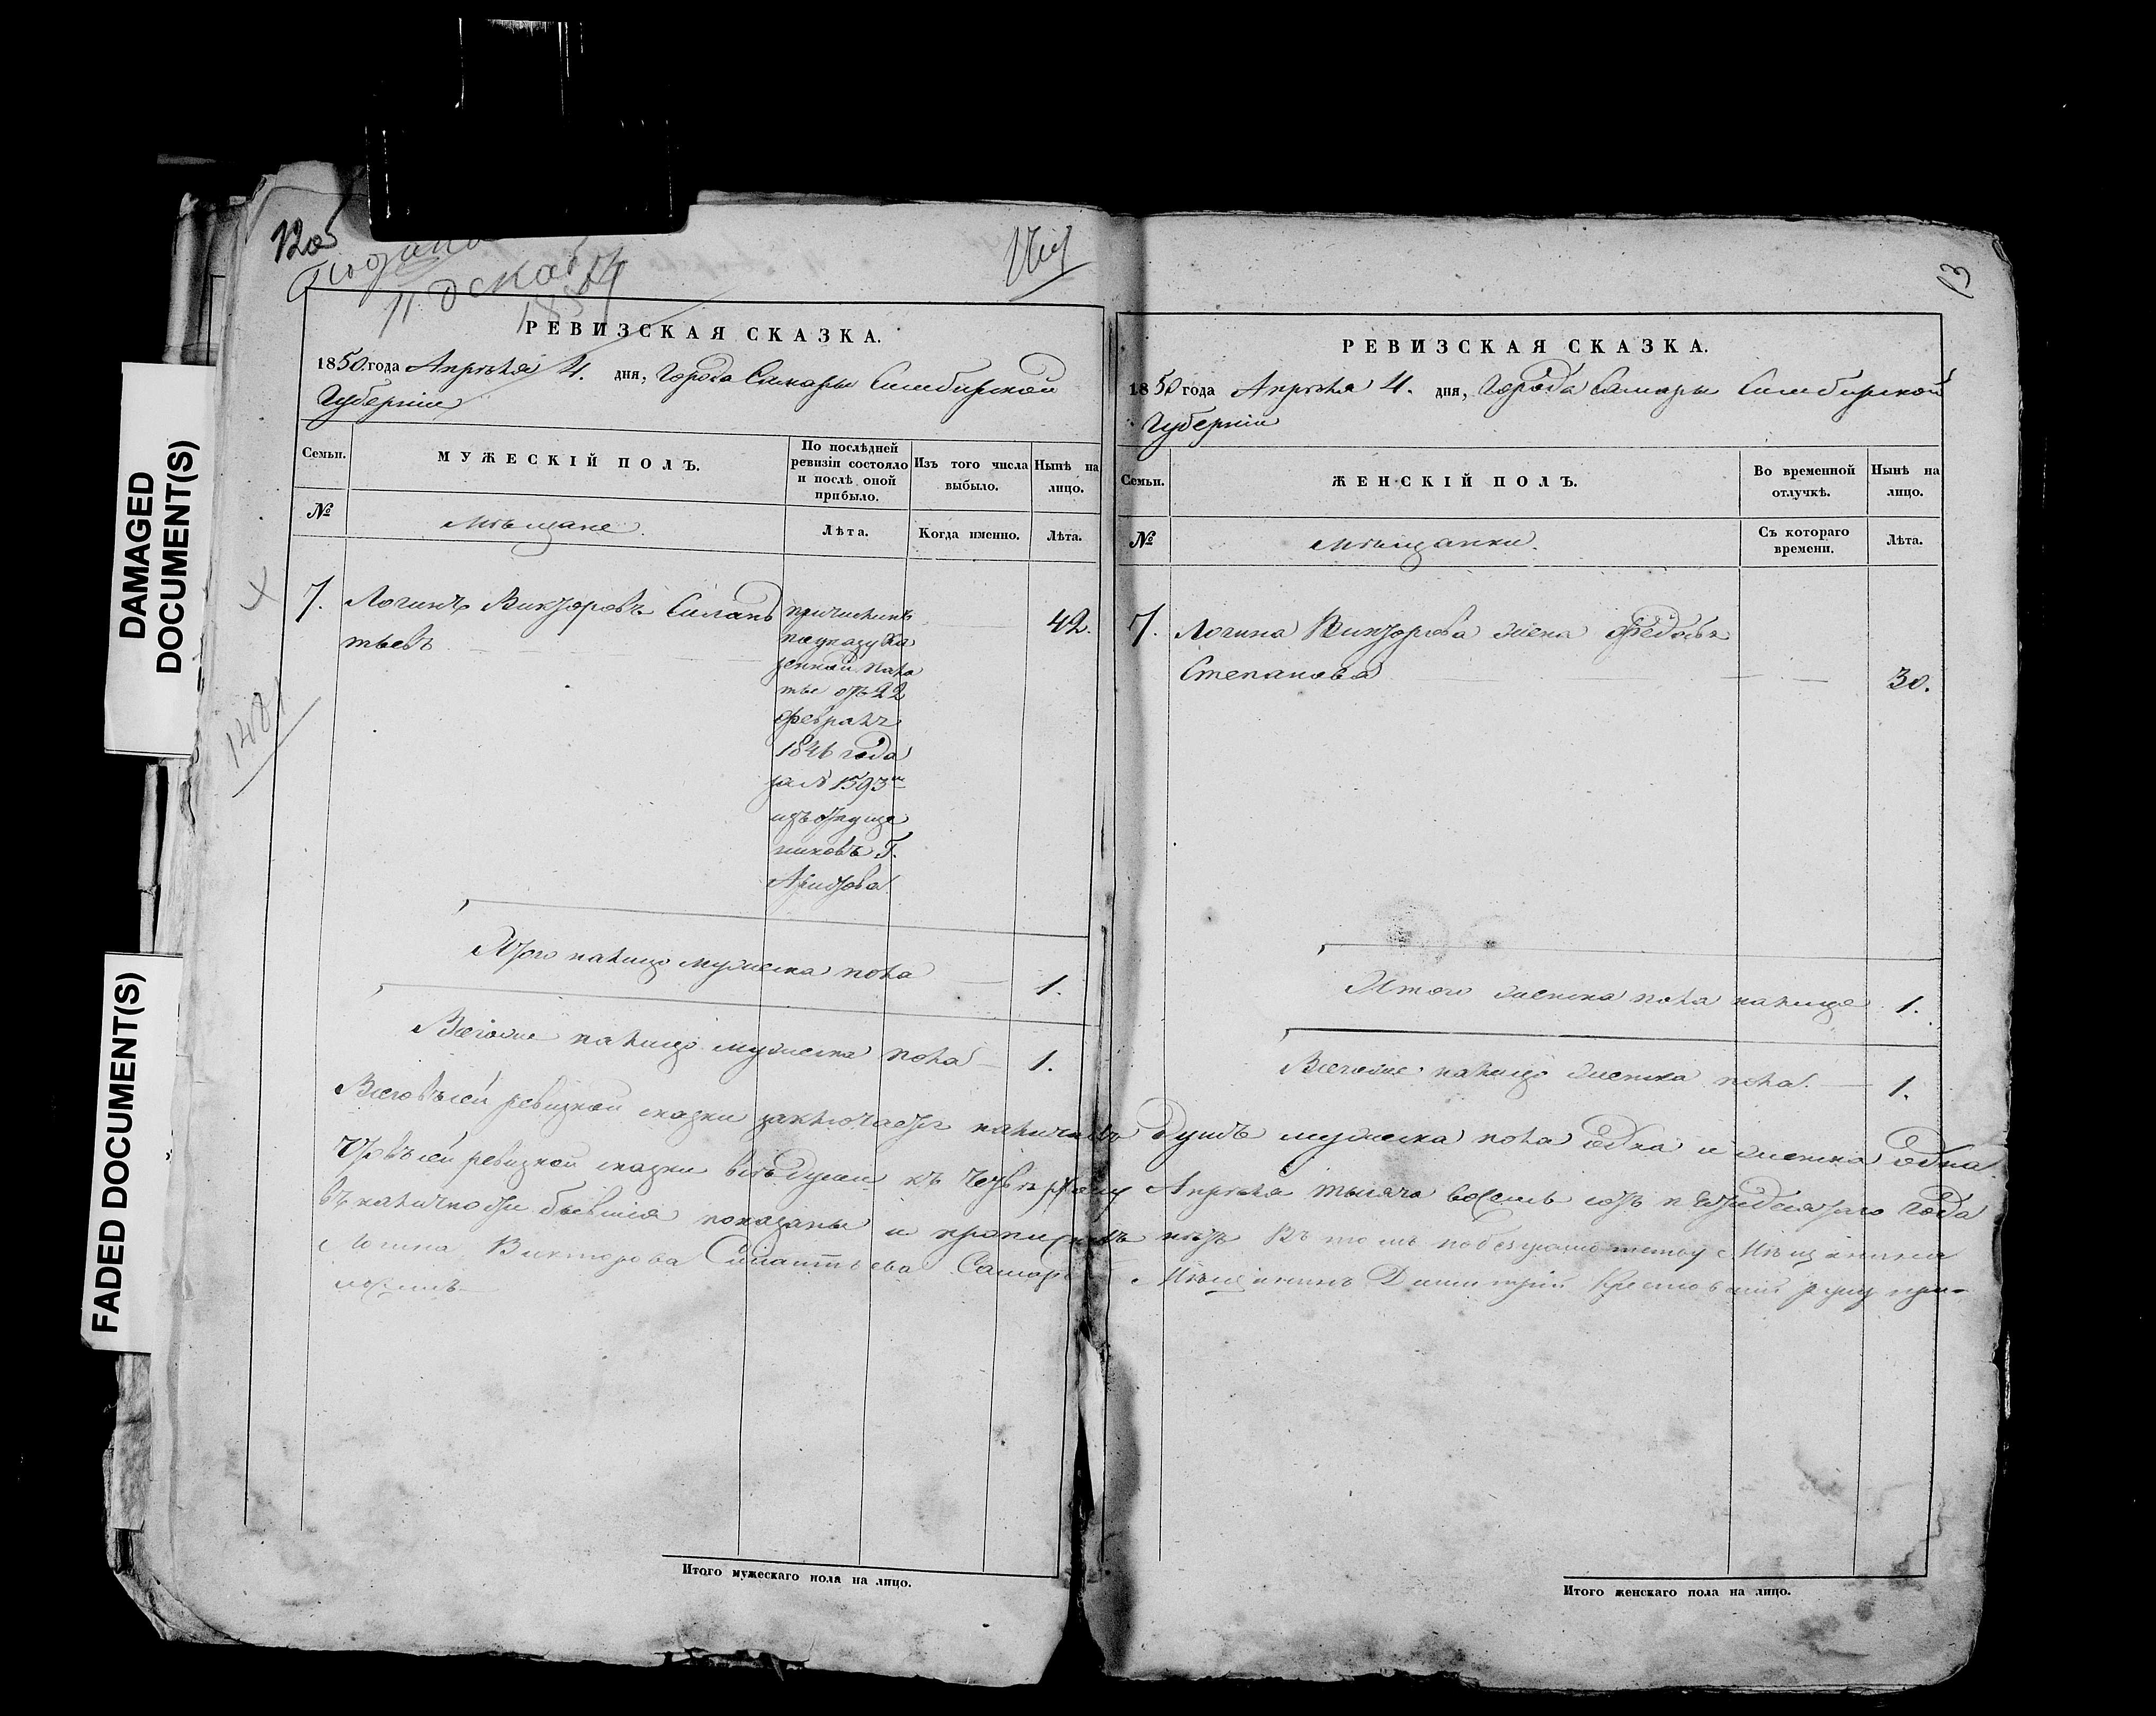 DAMAGED
DOCUMENT(S)
FADED DOCUMENT(S)
120
11 декаб
РЕВИЗСКАЯ СКАЗКА.
1850 года Апрѣля 4. дня, Города Самары Симбирской
Губерніи
Семьи.
МУЖЕСКІЙ ПОЛЪ.
По послѣдней
ревизіи состояло
и послѣ оной
прибыло.
Изъ того числа
выбыло.
Нынѣ на
лицо.
№
Мѣщане.
Лѣта.
Когда именно.
Лѣта.
7. Логинъ Викторовъ Силань
тьевъ
причисленъ
по указу Ка
зенной Пала
ты отъ 22
февраля
1846 года
за № 1593м
изъ отпуще
никовъ Г.
42.
Итого налицо мужеска пола 1.
Всегоже налицо мужеска пола 1.
13
РЕВИЗСКАЯ СКАЗКА.
1850 года Апрѣля 4. дня, Города Самары Симбирской
Губерніи
Семьи.
ЖЕНСКІЙ ПОЛЪ.
Во временной
отлучкѣ.
Нынѣ на
лицо.
№
Мѣщанки.
Съ котораго
времени.
Лѣта.
7. Логина Викторова жена Федось
Степанова 30.
Итого женска пола налицо 1.
Всегоже налицо женска пола 1.
Всего въ сей ревизкой сказки заключается наличныхъ душъ мужеска пола одна и женска одна
Что въ сей ревизкой сказки всѣ души къ четвертому Апрѣля тысяча восемь сотъ пятидесятаго года
въ наличности бывшія показаны и прописныхъ нѣтъ Въ томъ по безграмотству Мѣщанина
Логина Викторова Силантьева Самарс Мѣщанинъ Дмитрій руку при-
ложилъ
Итого мужескаго пола на лицо.
Итого женскаго пола на лицо.